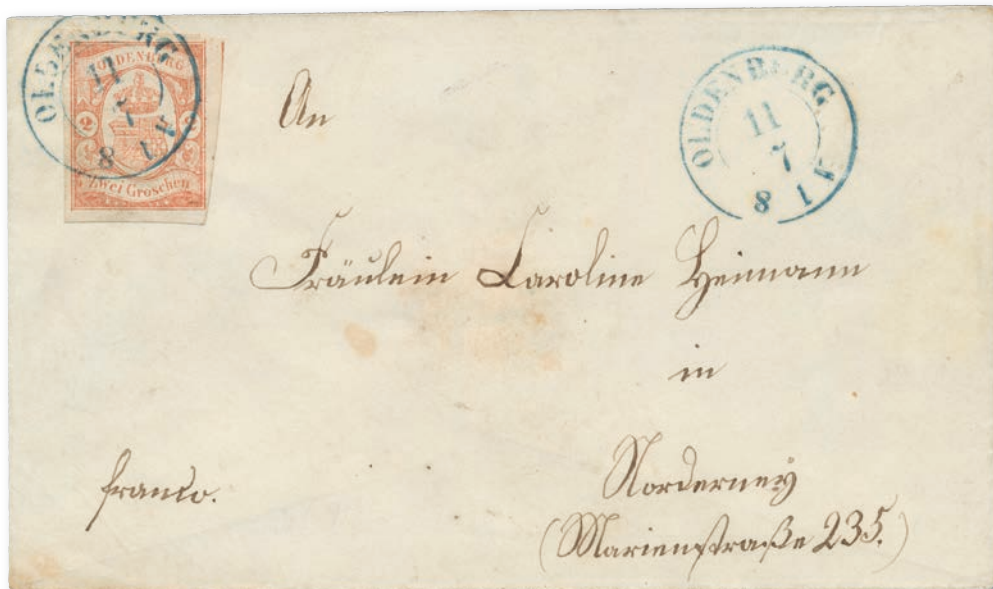 OLDENBURG
11
7
8 1
OLDENBURG
2
Zwei Groschen
OLDENBURG
11
7
8 1
An
Fräulein Caroline Heimann
in
Norderney
(Marienstraße 235.)
franco.